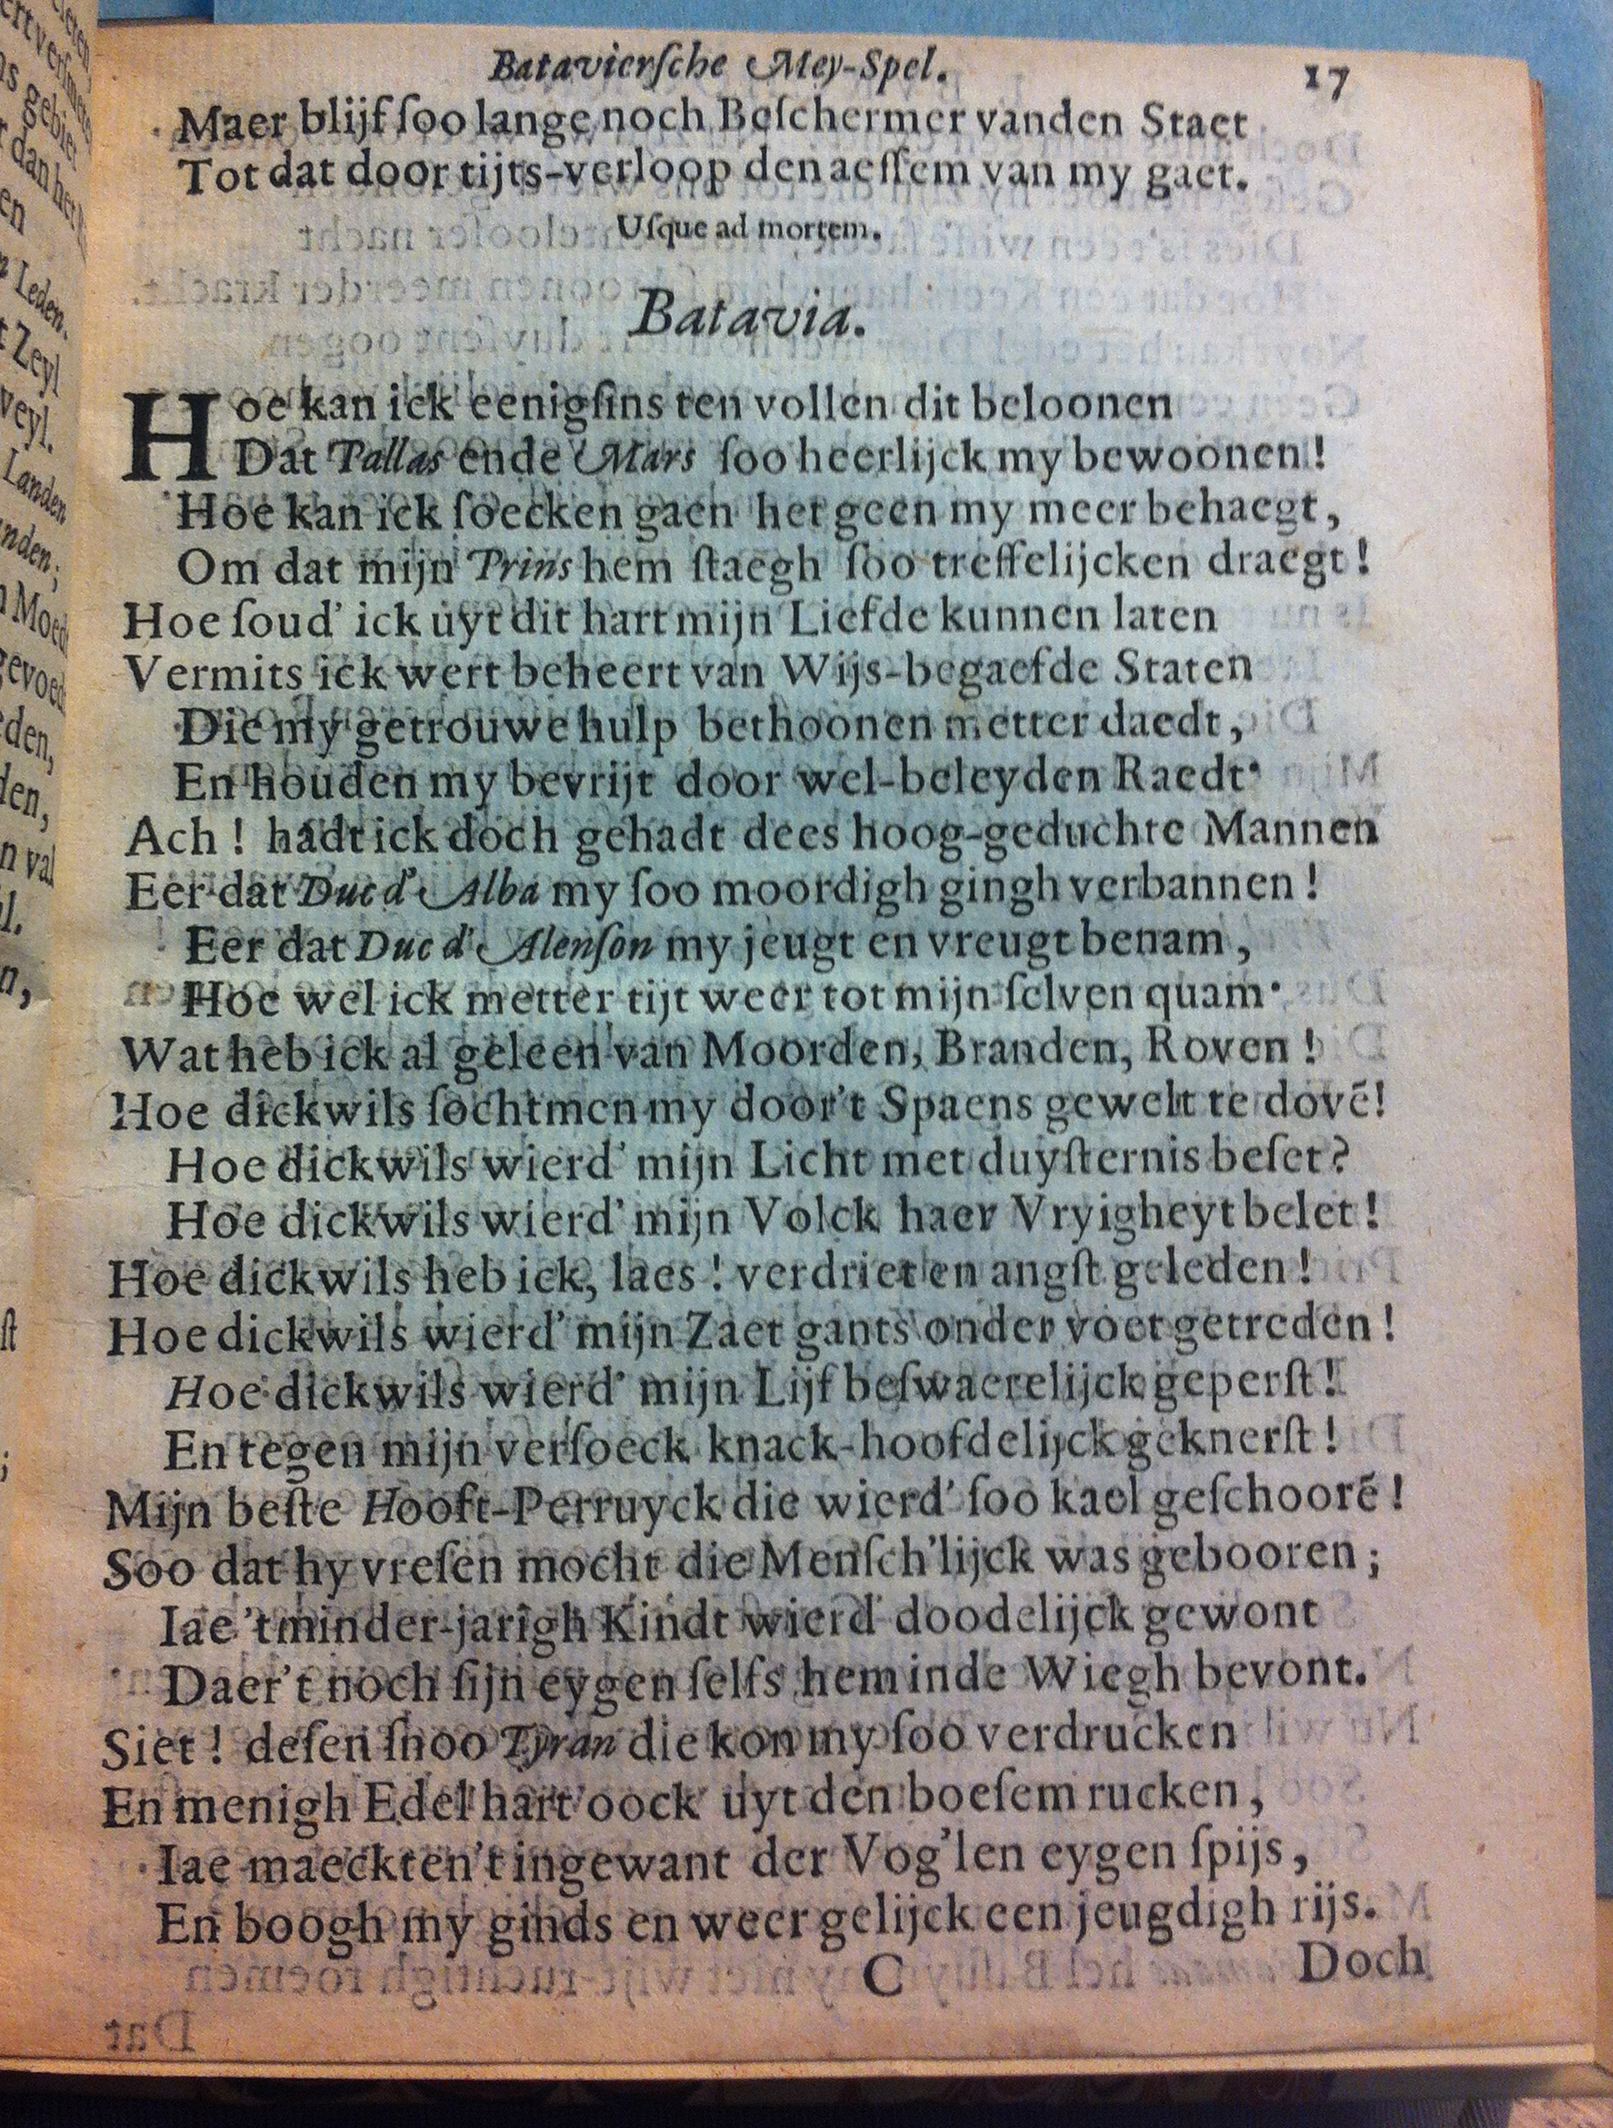 Bataviersche Mey-Spel. 17
Maer blijf ſoo lange noch Beſchermer vanden Staet
Tot dat door tijts-verloop den aeſſem van my gaet.
Uſque ad mortem.
Batavia.
Hoe kan ick eenigſins ten vollen dit beloonen
Dat Pallas ende Mars ſoo heerlijck my bewoonen!
Hoe kan ick ſoecken gaen het geen my meer behaegt,
Om dat mijn Prins hem ſtaegh ſoo treffelijcken draegt!
Hoe ſoud' ick uyt dit hart mijn Liefde kunnen laten
Vermits ick wert beheert van Wijs-begaefde Staten
Die my getrouwe hulp bethoonen metter daedt,
En houden my bevrijt door wel-beleyden Raedt.
Ach! hadt ick doch gehadt dees hoog-geduchte Mannen
Eer dat Duc d'Alba my ſoo moordigh gingh verbannen!
Eer dat Duc d'Alenſon my jeugt en vreugt benam,
Hoe wel ick metter tijt weer tot mijn ſelven quam.
Wat heb ick al geleen van Moorden, Branden, Roven!
Hoe dickwils ſocht men my door't Spaens gewelt te dovē!
Hoe dickwils wierd' mijn Licht met duyſternis beſet?
Hoe dickwils wierd' mijn Volck haer Vryigheyt belet!
Hoe dickwils heb ick, laes! verdriet en angſt geleden!
Hoe dickwils wierd' mijn Zaet gants onder voet getreden!
Hoe dickwils wierd' mijn Lijf beſwaerelijck geperſt!
En tegen mijn verſoeck knack-hoofdelijck geknerſt!
Mijn beſte Hooft-Perruyck die wierd' ſoo kael geſchoorē!
Soo dat hy vreſen mocht die Menſch'lijck was gebooren;
Iae 't minder-jarigh Kindt wierd' doodelijck gewont
Daer't noch ſijn eygen ſelfs hem inde Wiegh bevont.
Siet! deſen ſnoo Tyran die kon my ſoo verdrucken
En menigh Edel hart oock uyt den boeſem rucken,
Iae maeckten't ingewant der Vog'len eygen ſpijs,
En boogh my ginds en weer gelijck een jeugdigh rijs.
C Doch